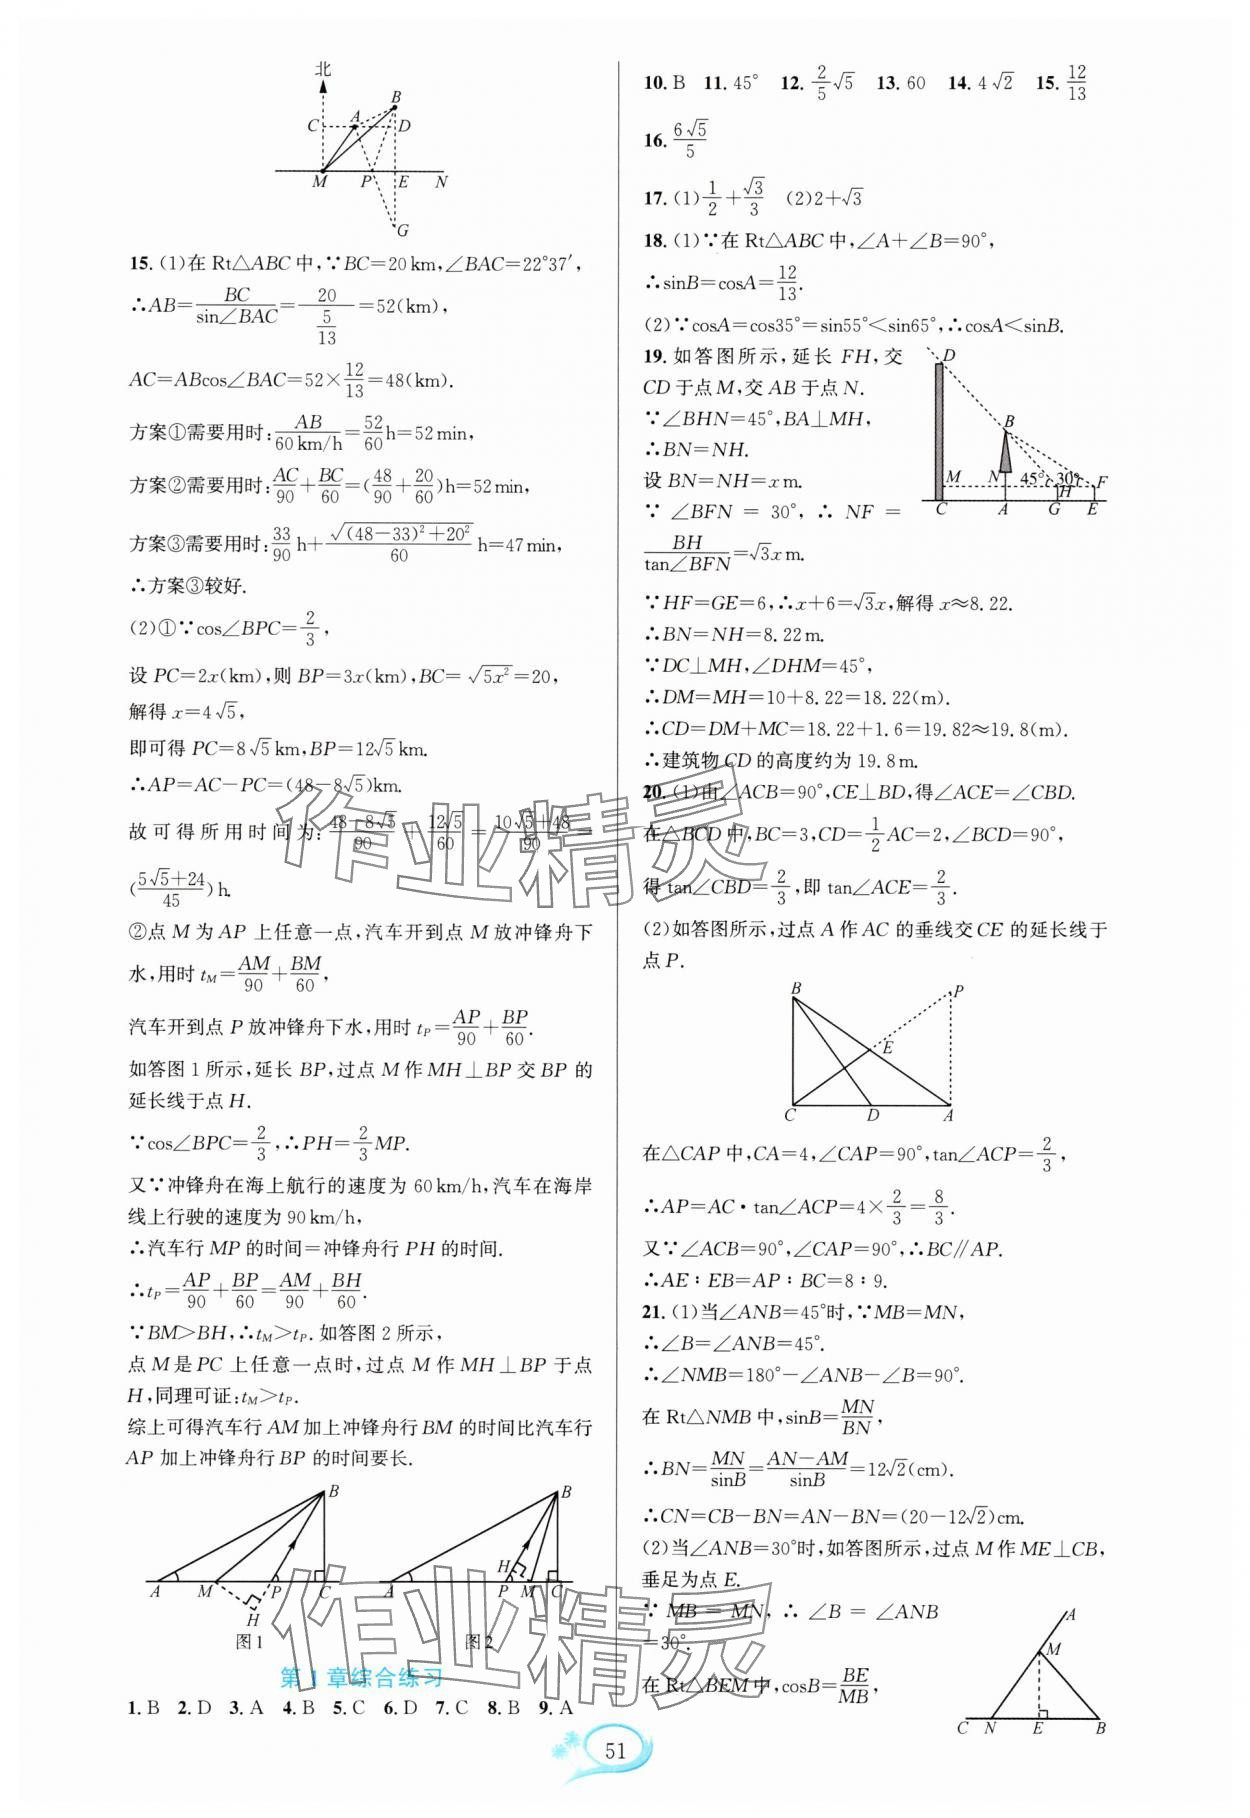 北
B
A
C
D
M
P
E
N
G
15. (1)在 Rt△ABC 中,∵BC=20 km,∠BAC=22°37′,
∴AB=BC/sin∠BAC=20/(5/13)=52(km),
AC=ABcos∠BAC=52×12/13=48(km).
方案①需要用时:AB/60 km/h=52/60 h=52 min,
方案②需要用时:AC/90+BC/60=(48/90+20/60)h=52 min,
方案③需要用时:33/90 h+√((48-33)²+20²)/60 h=47 min,
∴方案③较好.
(2)①∵cos∠BPC=2/3,
设 PC=2x(km),则 BP=3x(km),BC=√(5x²)=20,
解得 x=4√5,
即可得 PC=8√5 km,BP=12√5 km.
∴AP=AC-PC=(48-8√5)km.
故可得所用时间为:(48-8√5)/90+12√5/60=(10√5+48)/90=
((5√5+24)/45)h.
②点 M 为 AP 上任意一点,汽车开到点 M 放冲锋舟下
水,用时 t_M=AM/90+BM/60,
汽车开到点 P 放冲锋舟下水,用时 t_P=AP/90+BP/60.
如答图 1 所示,延长 BP,过点 M 作 MH⊥BP 交 BP 的
延长线于点 H.
∵cos∠BPC=2/3,∴PH=2/3 MP.
又∵冲锋舟在海上航行的速度为 60 km/h,汽车在海岸
线上行驶的速度为 90 km/h,
∴汽车行 MP 的时间=冲锋舟行 PH 的时间.
∴t_P=AP/90+BP/60=AM/90+BH/60.
∵BM>BH,∴t_M>t_P.如答图 2 所示,
点 M 是 PC 上任意一点时,过点 M 作 MH⊥BP 于点
H,同理可证:t_M>t_P.
综上可得汽车行 AM 加上冲锋舟行 BM 的时间比汽车行
AP 加上冲锋舟行 BP 的时间要长.
B
A
M
P
C
H
图 1
B
H
A
P
M
C
图 2
第 1 章综合练习
1. B 2. D 3. A 4. B 5. C 6. D 7. C 8. B 9. A
10. B 11. 45° 12. 2/5√5 13. 60 14. 4√2 15. 12/13
16. 6√5/5
17. (1)1/2+√3/3 (2)2+√3
18. (1)∵在 Rt△ABC 中,∠A+∠B=90°,
∴sinB=cosA=12/13.
(2)∵cosA=cos35°=sin55°<sin65°,∴cosA<sinB.
19. 如答图所示,延长 FH,交
CD 于点 M,交 AB 于点 N.
∵∠BHN=45°,BA⊥MH,
∴BN=NH.
设 BN=NH=x m.
∵ ∠BFN = 30°, ∴ NF =
BH/tan∠BFN=√3x m.
D
B
M
N
45°
30°
H
F
C
A
G
E
∵HF=GE=6,∴x+6=√3x,解得 x≈8.22.
∴BN=NH=8.22 m.
∵DC⊥MH,∠DHM=45°,
∴DM=MH=10+8.22=18.22(m).
∴CD=DM+MC=18.22+1.6=19.82≈19.8(m).
∴建筑物 CD 的高度约为 19.8 m.
20. (1)由∠ACB=90°,CE⊥BD,得∠ACE=∠CBD.
在△BCD 中,BC=3,CD=1/2 AC=2,∠BCD=90°,
得 tan∠CBD=2/3,即 tan∠ACE=2/3.
(2)如答图所示,过点 A 作 AC 的垂线交 CE 的延长线于
点 P.
B
P
E
C
D
A
在△CAP 中,CA=4,∠CAP=90°,tan∠ACP=2/3,
∴AP=AC·tan∠ACP=4×2/3=8/3.
又∵∠ACB=90°,∠CAP=90°,∴BC∥AP.
∴AE∶EB=AP∶BC=8∶9.
21. (1)当∠ANB=45°时,∵MB=MN,
∴∠B=∠ANB=45°.
∴∠NMB=180°-∠ANB-∠B=90°.
在 Rt△NMB 中,sinB=MN/BN,
∴BN=MN/sinB=(AN-AM)/sinB=12√2(cm).
∴CN=CB-BN=AN-BN=(20-12√2)cm.
(2)当∠ANB=30°时,如答图所示,过点 M 作 ME⊥CB,
垂足为点 E.
∵ MB = MN, ∴ ∠B = ∠ANB
=30°.
在 Rt△BEM 中,cosB=BE/MB,
A
M
C
N
E
B
51
作业精灵
作业精灵